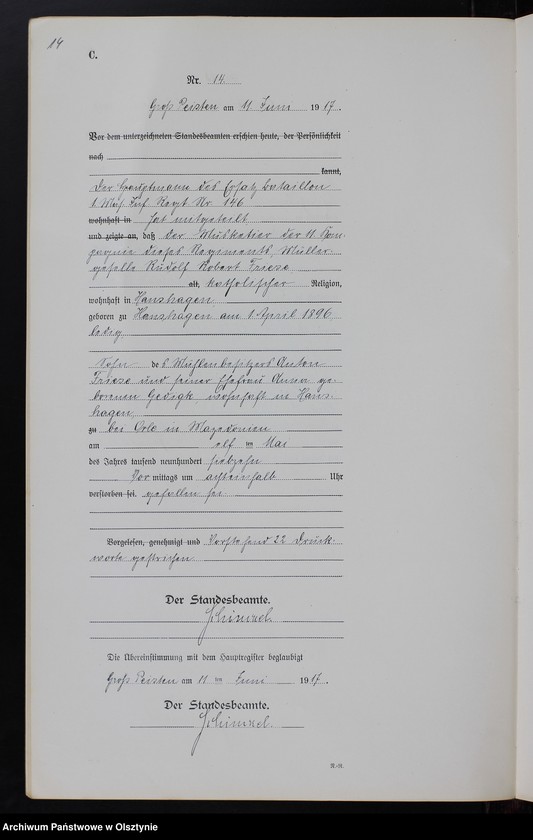 14
C.
Nr. 14.
Groß Peisten am 11 Juni 1917.
Vor dem unterzeichneten Standesbeamten erschien heute, der Persönlichkeit
nach
kannt,
Der Hauptmann des Ersatz Bataillon
1. Inf. Regt Nr. 146
wohnhaft in hat mitgeteilt
und zeigte an, daß der Musketier der 11 Kom-
pagnie dieses Regiments, Müller-
geselle Rudolf Robert Friese
alt, katholischer Religion,
wohnhaft in Hanshagen
geboren zu Hanshagen am 1. April 1896
ledig
Sohn des Mühlenbesitzers Anton
Friese und seiner Ehefrau Anna ge-
borenen Gedigk, wohnhaft in Hans-
hagen
zu bei Orlo in Mazedonien
am elf ten Mai
des Jahres tausend neunhundert siebzehn
Vor mittags um achteinhalb Uhr
verstorben sei. gefallen sei
Vorgelesen, genehmigt und Vorstehend 22 Druck-
worte gestrichen
Der Standesbeamte.
Schimzel
Die Übereinstimmung mit dem Hauptregister beglaubigt
Groß Peisten am 11 ten Juni 1917.
Der Standesbeamte.
Schimzel
Archiwum Państwowe w Olsztynie